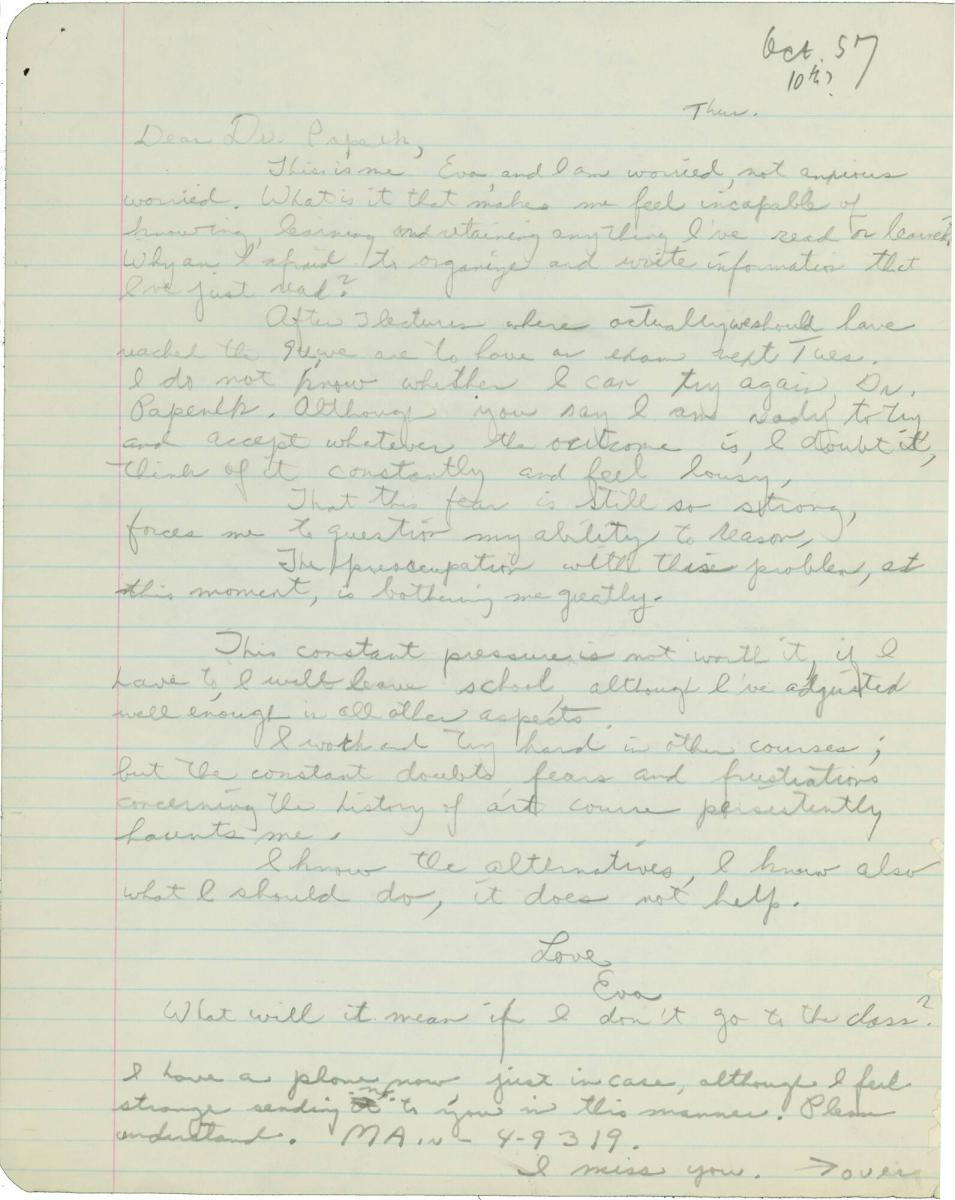 Oct. 57
10th?
Thur.
Dear Dr. Papanek,
This is me Eva, and I am worried, not anxious
worried. What is it that makes me feel incapable of
knowing, learning and retaining anything I've read or learned.
Why am I afraid to organize and write information that
I've just read?
After 3 lectures where actually we should have
reached the we are to have an exam next Tues.
I do not know whether I can try again, Dr.
Papenek. Although you say I am ready to try
and accept whatever the outcome is, I doubt it,
think of it constantly and feel lousy,
That this fear is still so strong,
forces me to question my ability to reason,
The preoccupation with this problem, at
this moment, is bothering me greatly.
This constant pressure is not worth it, if I
have to, I will leave school, although I've adjusted
well enough in all other aspects.
I work and try hard in other courses;
but the constant doubts fears and frustrations
concerning the history of art course persistently
haunts me.
I know the alternatives, I know also
what I should do, it does not help.
Love
Eva
What will it mean if I don't go to the class?
I have a phone now just in case, although I feel
strange sending to you in this manner. Please
understand. MAin - 4-9319.
I miss you. → over